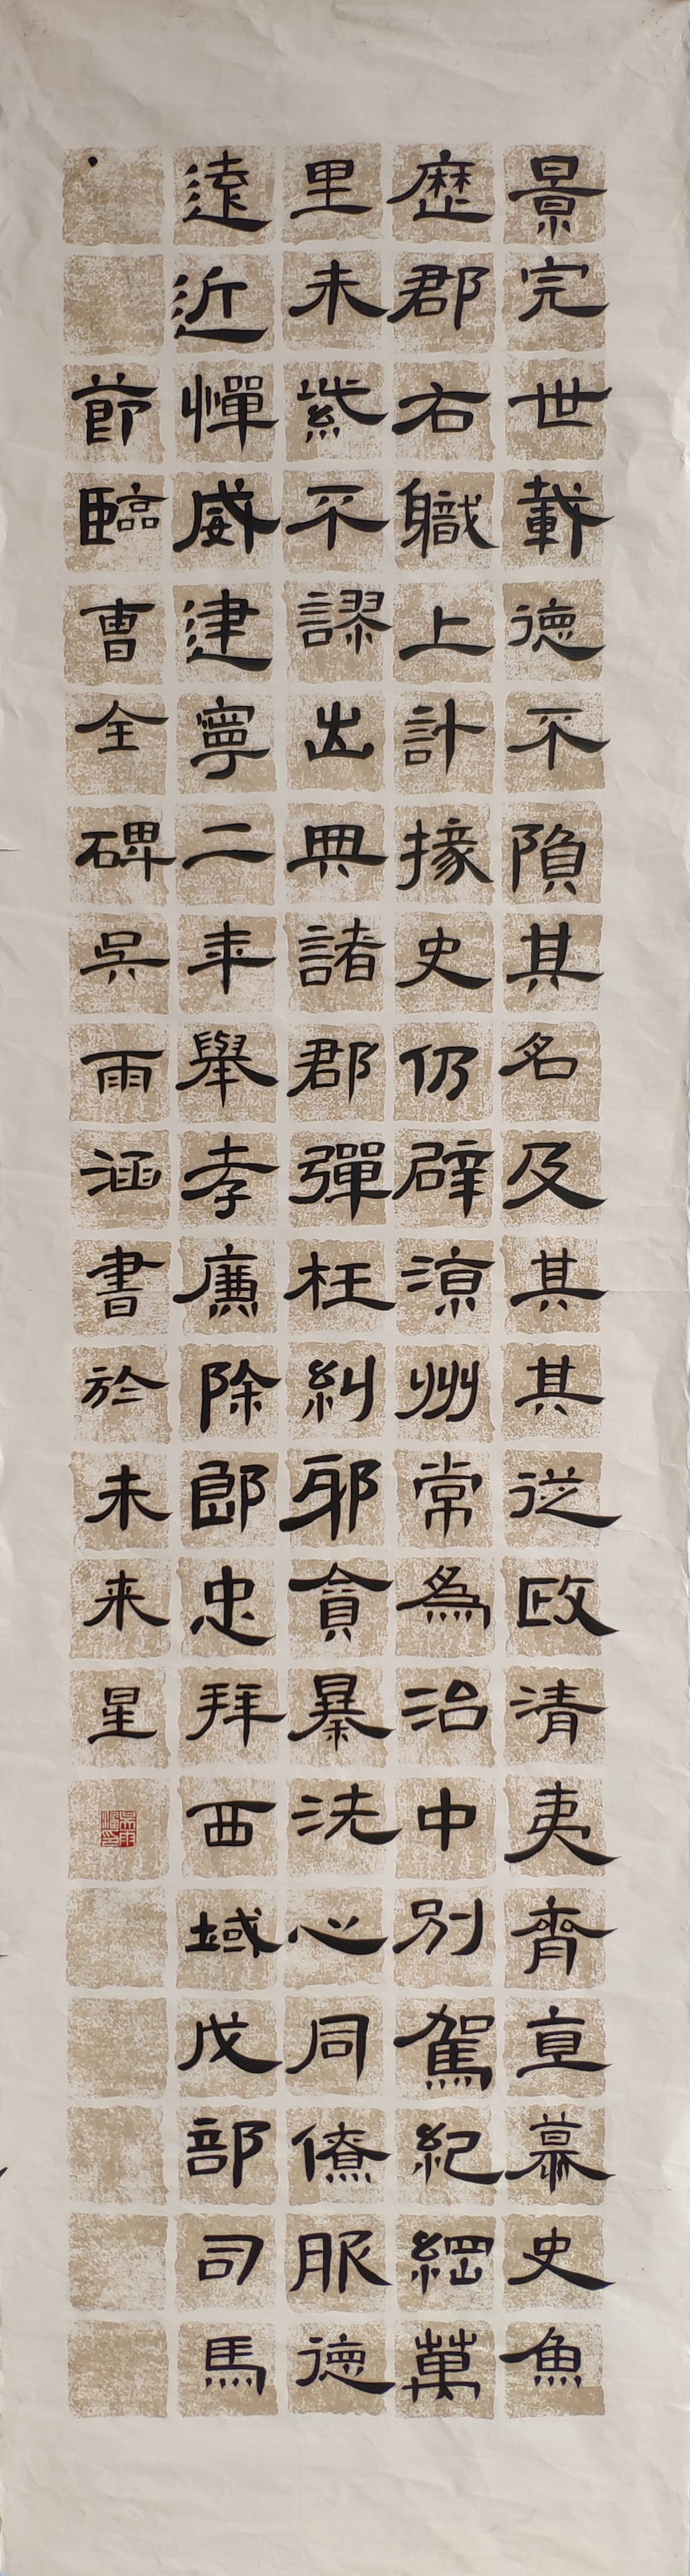 景完世載德不隕其名及其其從政清夷齊亘慕史魚
歷郡右職上計掾史仍辟涼州常為治中別駕紀綱萬
里未紫不謬出典諸郡彈枉糾邪貪暴洗心同僚服德
遠近憚威建寧二年舉孝廉除郎忠拜西域戊部司馬
節臨曹全碑吳雨涵書於未来星
吳雨涵印